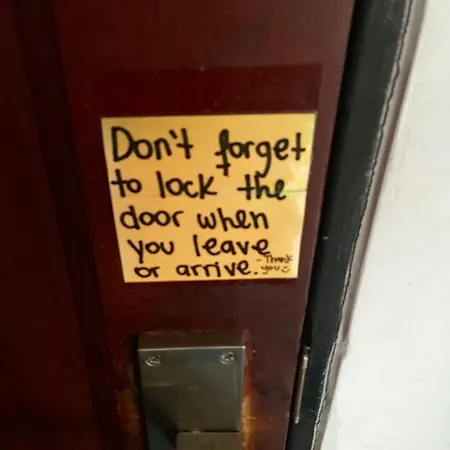 Don't forget
to lock the
door when
you leave
or arrive. -Thank
you☺